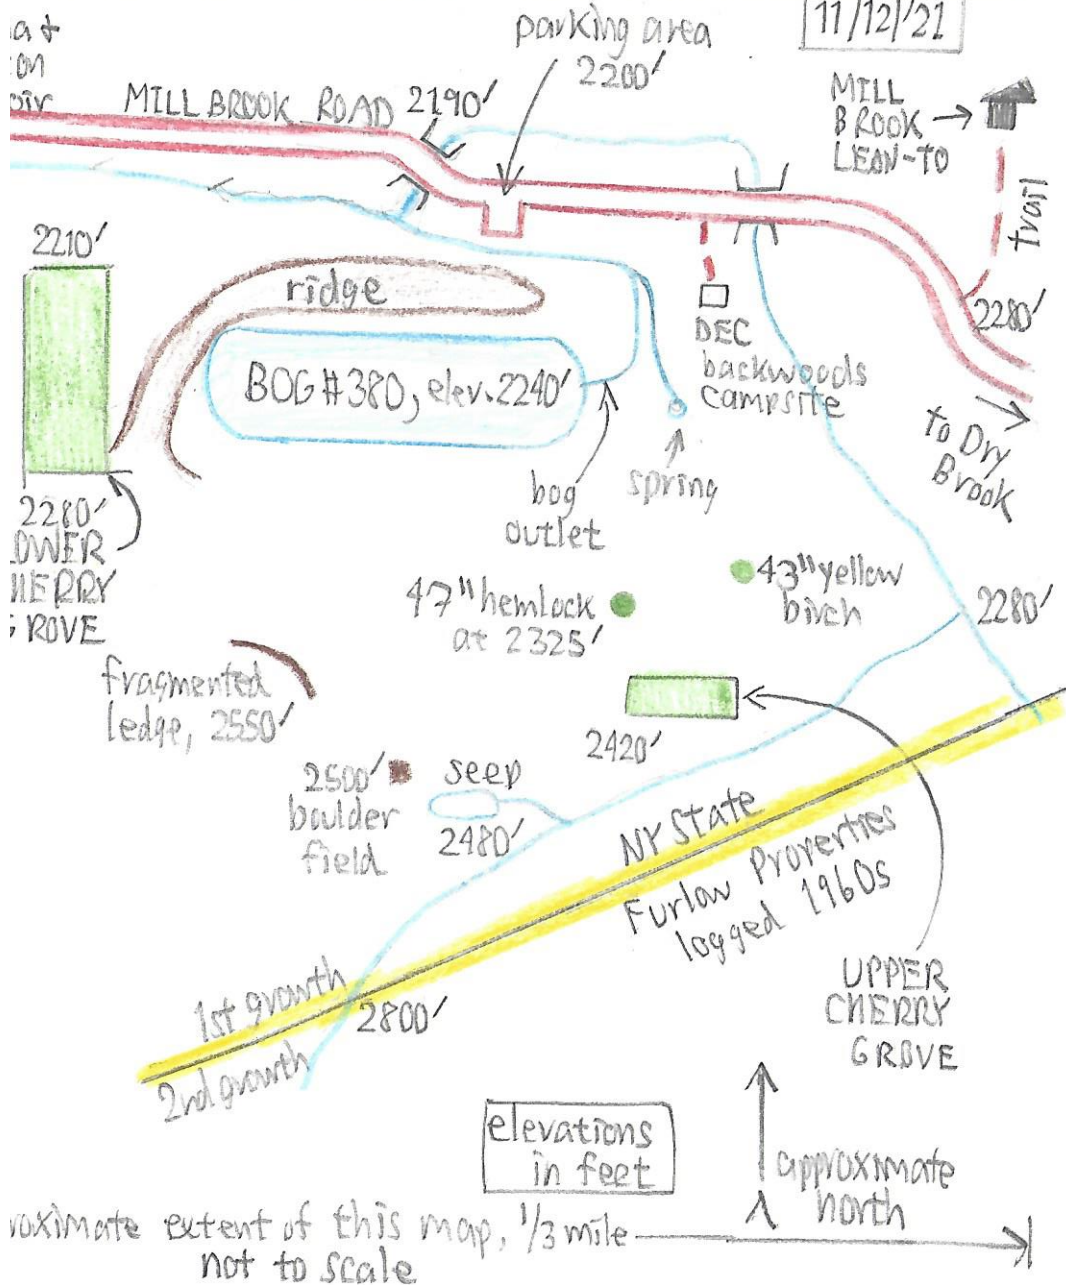 parking area
2200'
11/12/'21
MILL BROOK ROAD
2190'
MILL
BROOK
LEAN-TO
trail
2210'
ridge
2280'
DEC
backwoods
campsite
BOG #380, elev. 2240'
to Dry
Brook
bog
outlet
spring
2280'
OWER
HERRY
GROVE
47" hemlock
at 2325'
43" yellow
birch
2280'
fragmented
ledge, 2550'
2420'
2500'
boulder
field
seep
2480'
NY State
Furlow Properties
logged 1960s
1st growth
2nd growth
2800'
UPPER
CHERRY
GROVE
elevations
in feet
approximate
north
roximate extent of this map, 1/3 mile
not to scale